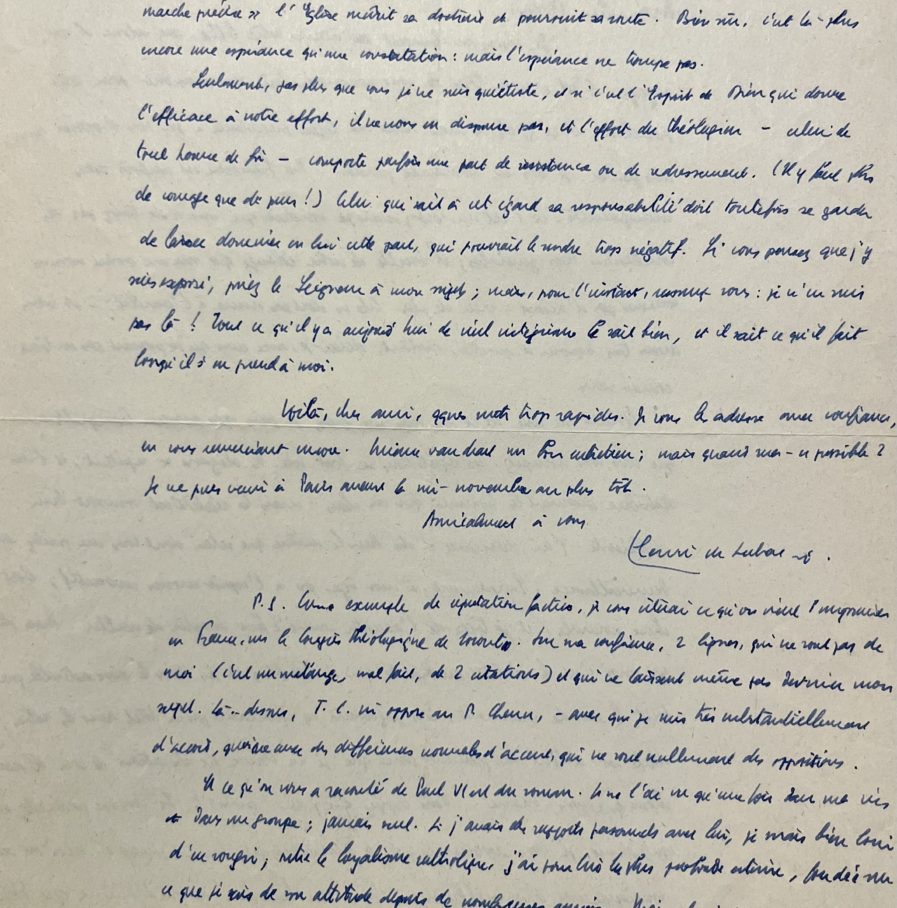 marche précise » l'Église mûrit sa doctrine et poursuit sa route. Bien sûr, c'est là plus
encore une espérance qu'une constatation : mais l'espérance ne trompe pas.
Seulement, pas plus que vous je ne suis quiétiste, et si c'est l'Esprit de Dieu qui donne
l'efficace à notre effort, il ne nous en dispense pas, et l'effort du théologien – celui de
tout homme de foi – comporte parfois une part de résistance ou de redressement. (Il y faut plus
de courage que de peur !) Celui qui sait à cet égard sa responsabilité doit toutefois se garder
de laisser dominer en lui cette part, qui pourrait le rendre trop négatif. Si vous pensez que j'y
suis exposé, priez le Seigneur à mon sujet ; mais, pour l'instant, rassurez vous : je n'en suis
pas là ! Tout ce qu'il y a aujourd'hui de vieil intégrisme le sait bien, et il sait ce qu'il fait
lorsqu'il s'en prend à moi.
Voilà, cher ami, qques mots trop rapides. Je vous les adresse avec confiance,
en vous remerciant encore. Mieux vaudrait un bon entretien ; mais quand sera-ce possible ?
Je ne puis venir à Paris avant la mi-novembre au plus tôt.
Amicalement à vous
Henri de Lubac sj.
P.S. Comme exemple de réputation factice, je vous citerai ce qu'on vient d'imprimer
en France, sur le Congrès théologique de Toronto. Sur ma conférence, 2 lignes, qui ne sont pas de
moi (c'est un mélange, mal fait, de 2 citations) et qui ne laissent même pas deviner mon
sujet. Là-dessus, T. C. m'oppose au P. Chenu, – avec qui je suis très substantiellement
d'accord, avec des différences normales d'accent, qui ne sont nullement des oppositions.
Et ce qu'on vous a raconté de Paul VI est du roman. Je ne l'ai vu qu'une fois dans ma vie
dans un groupe ; jamais seul. Si j'avais des rapports personnels avec lui, je serais bien loin
d'en rougir ; outre le loyalisme catholique j'ai pour lui la plus profonde estime, fondée sur
ce que je sais de son attitude depuis de nombreuses années.